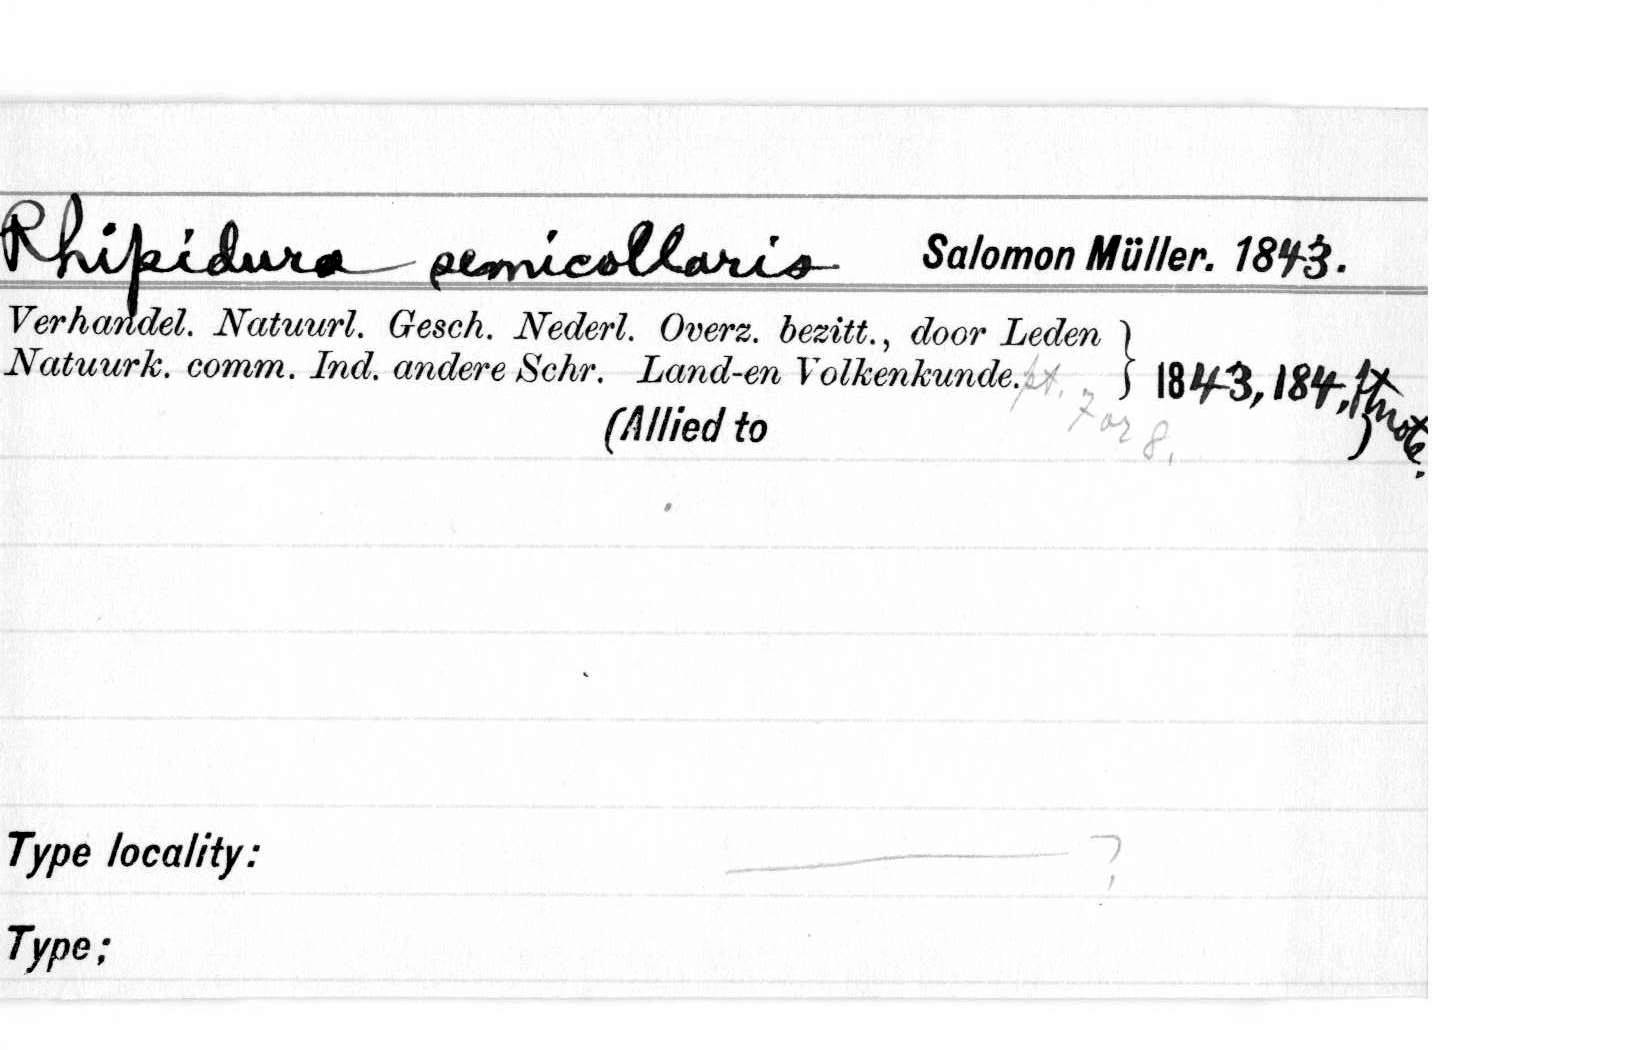 Rhipidura semicollaris Salomon Müller. 1843.
Verhandel. Natuurl. Gesch. Nederl. Overz. bezitt., door Leden
Natuurk. comm. Ind. andere Schr. Land-en Volkenkunde. pt. 7 or 8. } 1843, 184, ftnote.
(Allied to )
Type locality: ——— ?
Type;